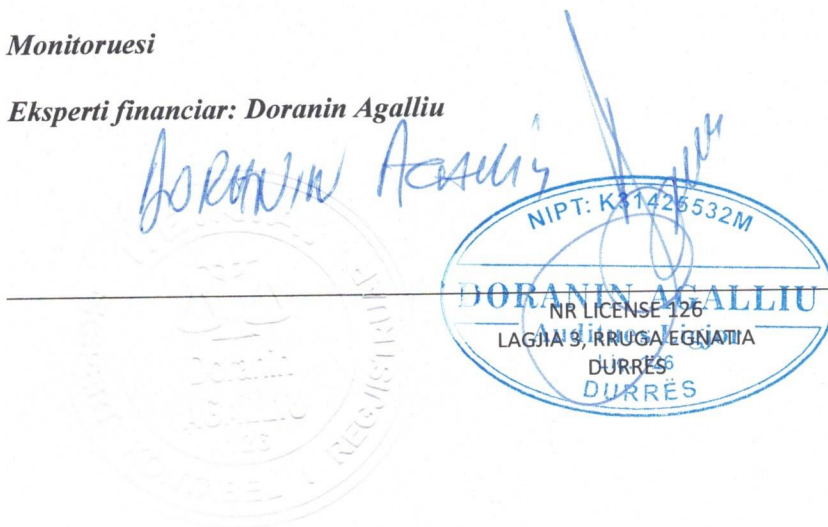 Monitoruesi
Eksperti financiar: Doranin Agalliu
DORANIN AGALLIU
NIPT: K31426532M
DORANIN AGALLIU
NR LICENSE 126
Auditues Ligjor
LAGJIA 3, RRUGA EGNATIA
DURRËS
DURRËS
Doranin
AGALLIU
126
REGJISTRUAR